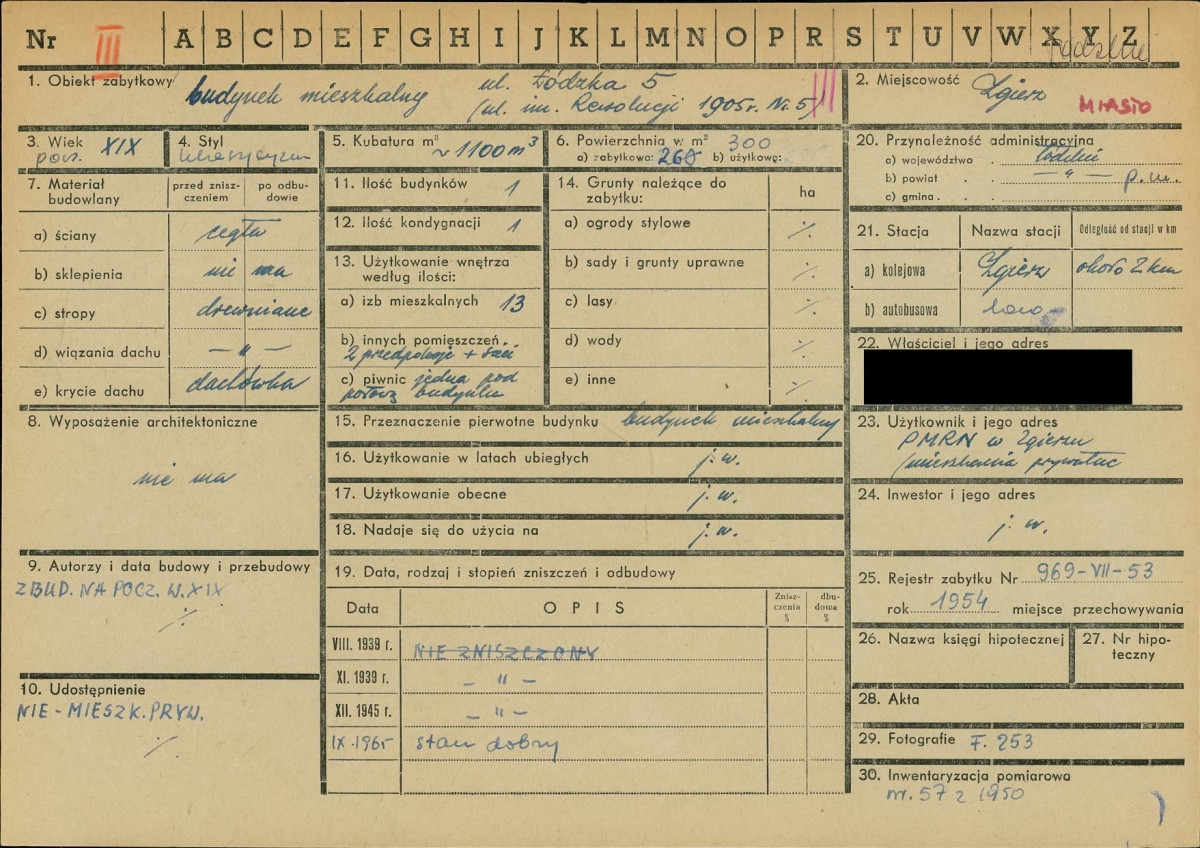 Nr III A B C D E F G H I J K L M N O P R S T U V W X Y Z
1. Obiekt zabytkowy
budynek mieszkalny ul. Łódzka 5
(ul. im. Rewolucji 1905 r. Nr. 5) III
2. Miejscowość Zgierz
MIASTO
3. Wiek
pocz. XIX
4. Styl
klasycyzm
5. Kubatura m³
~ 1100 m³
6. Powierzchnia w m² 300
a) zabytkowa: 260 b) użytkowę:
7. Materiał budowlany
przed znisz-
czeniem
po odbu-
dowie
a) ściany cegła
b) sklepienia nie ma
c) stropy drewniane
d) wiązania dachu — „ —
e) krycie dachu dachówka
8. Wyposażenie architektoniczne
nie ma
9. Autorzy i data budowy i przebudowy
ZBUD. NA POCZ. W. XIX
10. Udostępnienie
NIE - MIESZK. PRYW.
11. Ilość budynków 1
12. Ilość kondygnacji 1
13. Użytkowanie wnętrza
według ilości:
a) izb mieszkalnych 13
b) innych pomieszczeń.
2 przedpokoje + sień
c) piwnic jedna pod
połową budynku
14. Grunty należące do
zabytku:
ha
a) ogrody stylowe ./.
b) sady i grunty uprawne ./.
c) lasy ./.
d) wody ./.
e) inne ./.
15. Przeznaczenie pierwotne budynku budynek mieszkalny
16. Użytkowanie w latach ubiegłych j. w.
17. Użytkowanie obecne j. w.
18. Nadaje się do użycia na j. w.
19. Data, rodzaj i stopień zniszczeń i odbudowy
Data OPIS
Znisz-
czenia
%
dbu-
dowa
%
VIII. 1939 r. NIE ZNISZCZONY
XI. 1939 r. — „ —
XII. 1945 r. — „ —
IX. 1965 stan dobry
20. Przynależność administracyjna
a) województwo . łódzkie
b) powiat . . — „ — p. m.
c) gmina . . .
21. Stacja Nazwa stacji Odległość od stacji w km
a) kolejowa Zgierz około 2 km
b) autobusowa loco
22. Właściciel i jego adres
23. Użytkownik i jego adres
PMRN w Zgierzu
(mieszkania prywatne
24. Inwestor i jego adres
j. w.
25. Rejestr zabytku Nr 969-VII-53
rok 1954 miejsce przechowywania
26. Nazwa księgi hipotecznej
27. Nr hipo-
teczny
28. Akta
29. Fotografie F. 253
30. Inwentaryzacja pomiarowa
nr. 57 z 1950